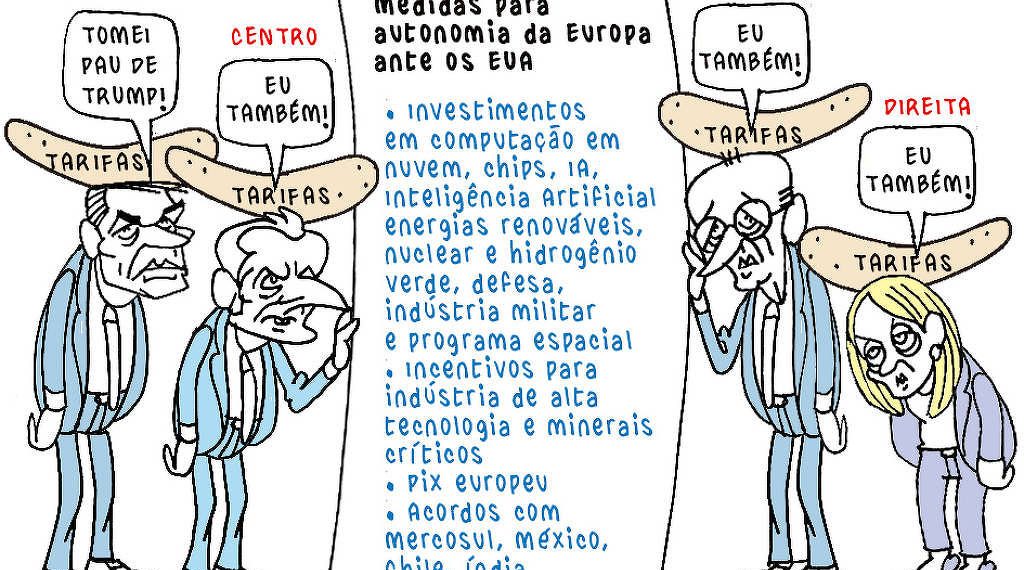 TOMEI
PAU DE
TRUMP!
CENTRO
EU
TAMBÉM!
TARIFAS
TARIFAS
Medidas para
autonomia da Europa
ante os EUA
• Investimentos
em computação em
nuvem, chips, IA,
Inteligência Artificial
energias renováveis,
nuclear e hidrogênio
verde, defesa,
indústria militar
e programa espacial
• Incentivos para
indústria de alta
tecnologia e minerais
críticos
• Pix europeu
• Acordos com
mercosul, méxico,
chile, índia
EU
TAMBÉM!
TARIFAS
DIREITA
EU
TAMBÉM!
TARIFAS